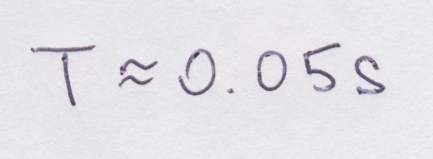 T ≈ 0.05s